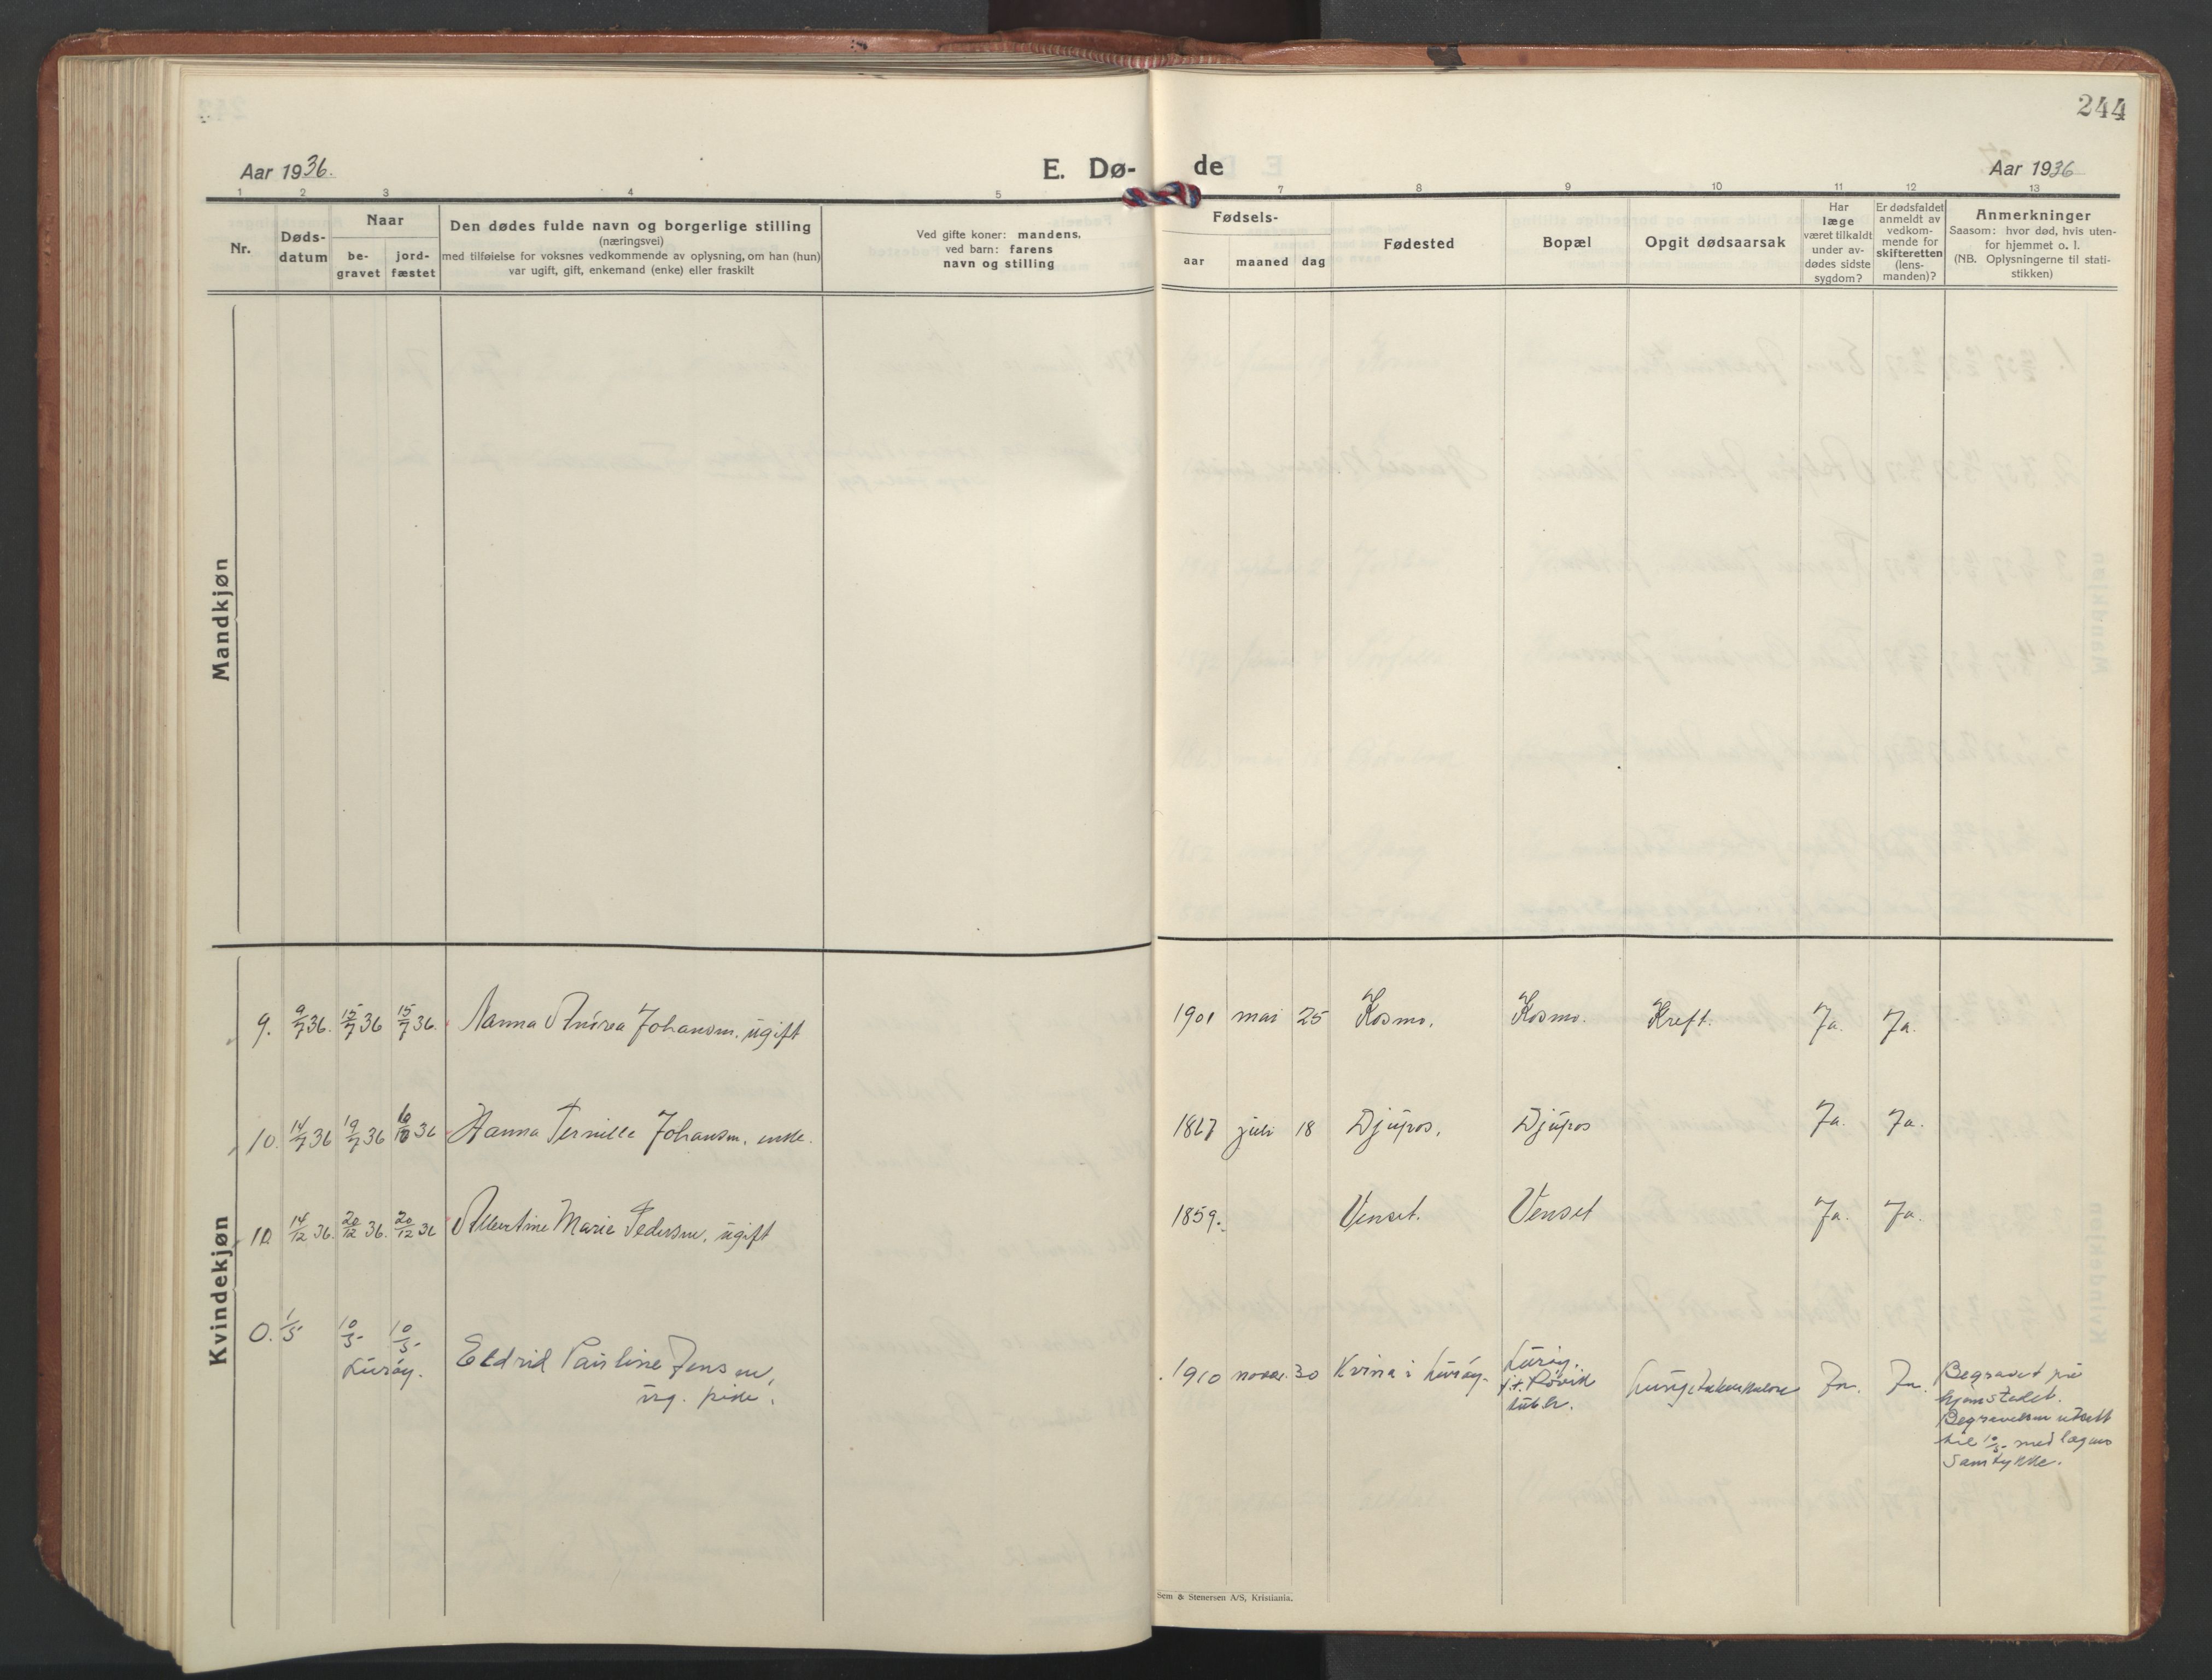 244
Aar 1936.
E. Dø-
de
Aar 1936
1 2 3 4 5 7 8 9 10 11 12 13
Nr.
Døds-
datum
Naar
be-
gravet
jord-
fæstet
Den dødes fulde navn og borgerlige stilling
(næringsvei)
med tilføielse for voksnes vedkommende av oplysning, om han (hun)
var ugift, gift, enkemand (enke) eller fraskilt
Ved gifte koner: mandens,
ved barn: farens
navn og stilling
Fødsels-
aar
maaned
dag
Fødested
Bopæl
Opgit dødsaarsak
Har
læge
været tilkaldt
under av-
dødes sidste
sygdom?
Er dødsfaldet
anmeldt av
vedkom-
mende for
skifteretten
(lens-
manden)?
Anmerkninger
Saasom: hvor død, hvis uten-
for hjemmet o. l.
(NB. Oplysningerne til stati-
stikken)
Mandkjøn
Kvindekjøn
9. 9/7 36. 15/7 36 15/7 36. Nanna Andrea Johansen. ugift 1901 mai 25 Kosmo. Kosmo. Kreft. Ja. Ja.
10. 14/7 36 19/7 36 36 Hanna Pernille Johansen. enke. 1867 juli 18 Djupos. Djupos Ja. Ja.
14/12 36. 20/12 36. 20/12 36 Albertine Marie Pedersen, ugift 1859. Venset. Venset Ja. Ja.
0. 1/5 10/5 10/5
Lurøy.
Eldrid Pauline Jensen,
ug. pike.
1910 novbr. 30 Kvina i Lurøy. Lurøy.
f.t. Røvik
tub.h.
Lungetuberkulose Ja. Ja.
Begravet på
hjemstedet.
Begravelsen utsatt
til 10/5 med lægens
samtykke.
Sem & Stenersen A/S, Kristiania.